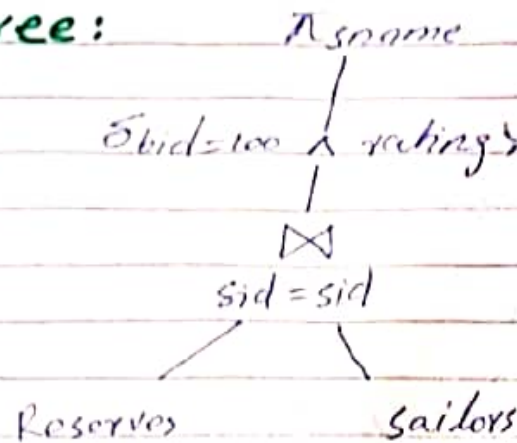 ree: π sname
σ bid=100 ∧ rating>
⋈
sid = sid
Reserves sailors